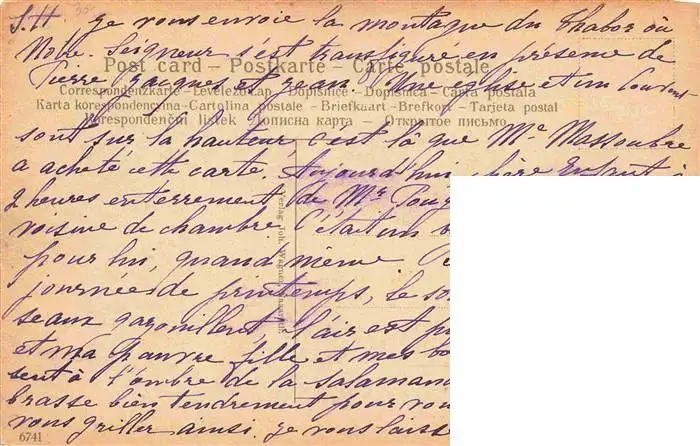 S.H je vous envoie la montagne du Thabor où
Notre Seigneur s'est transfiguré en présence de
Post card – Postkarte – Carte postale
Pierre Jacques et Jean. Une église et un Couvent
Correspondenzkarte – Levelező-Lap – Dopisnice – Dopisnica – Carta postala
Karta korespondencyjna – Cartolina postale – Briefkaart – Brefkort – Tarjeta postal
Korespondenční lístek – Дописна карта – Открытое письмо
sont sur la hauteur, c'est là que Me Massoubre
a acheté cette carte. Aujourd'hui, chère Enfant à
2 heures enterrement de Mr
voisine de chambre. C'était un
pour lui, quand même
journée de printemps, le
seaux gazouillent l'air est
et ma pauvre fille et mes
sent à l'ombre de la
brasse bien tendrement pour
vous griller ainsi. je vous laisse
Verlag Joh.
6741